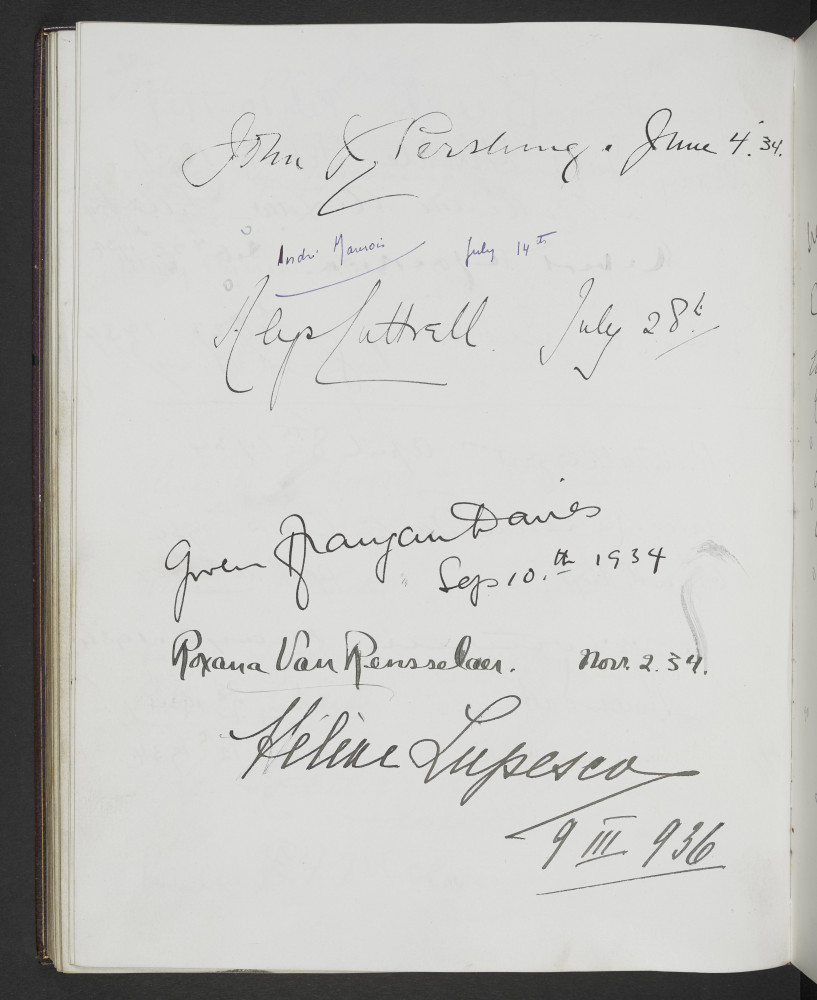 John J. Pershing. June 4. 34.
André Maurois July 14th
Alys Luttrell July 28th
Gwen Ffrangcon Davies
Sep 10.th 1934
Roxana Van Rensselaer. Nov. 2. 34.
Hélène Lupesco
9 III 936